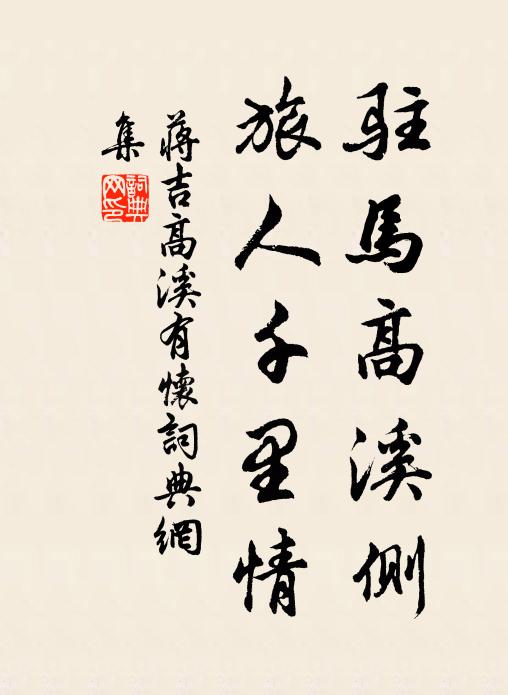 駐馬高溪側
旅人千里情
蔣吉高溪有懷詞典網
集
詞典網印